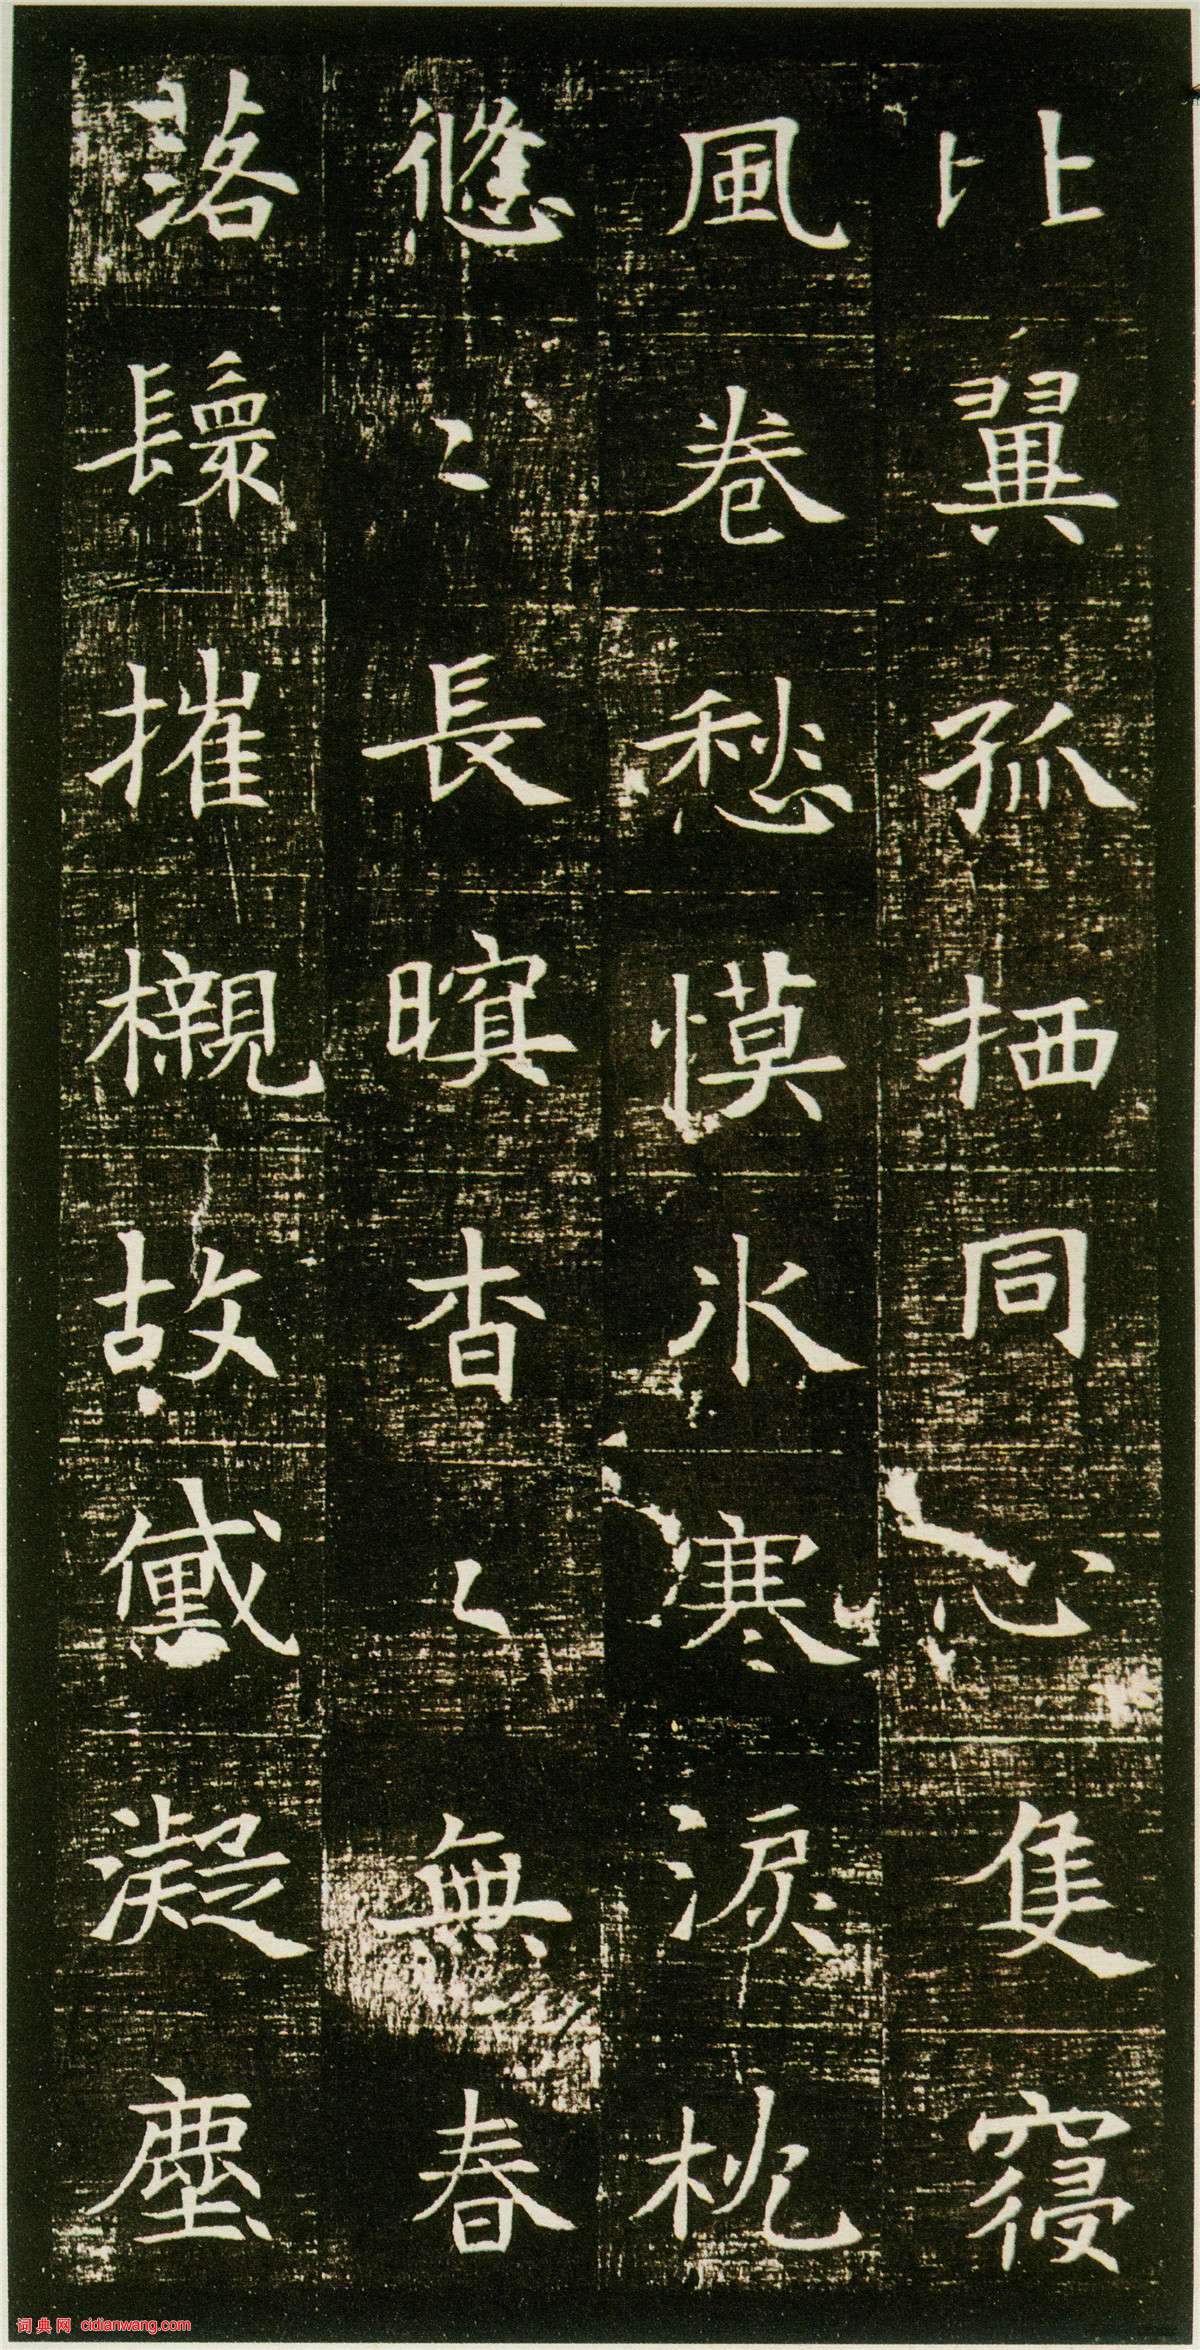 比翼孤栖同心隻寢
風卷愁慔冰寒淚枕
悠〻長暝杳〻無春
落鬟摧櫬故黛凝塵
词典网 cidianwang.com